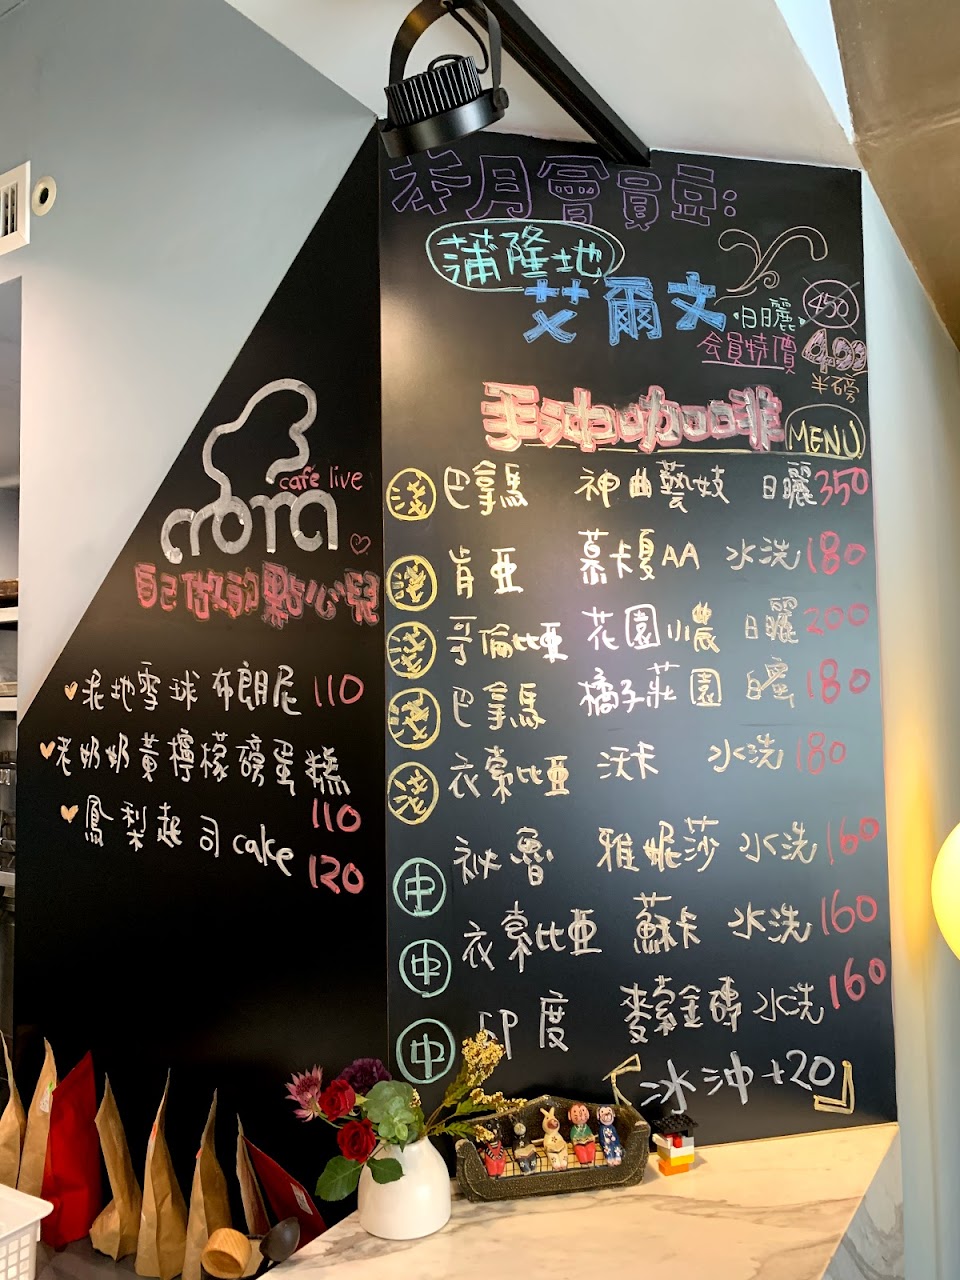 本月會員豆:
蒲隆地
艾爾文 日曬 450
会員特價 400
半磅
手冲咖啡 MENU
淺 巴拿馬 神曲藝妓 日曬 350
淺 肯亞 慕卡夏AA 水洗 180
淺 哥倫比亞 花園小農 日曬 200
淺 巴拿馬 橘子莊園 白蜜 180
淺 衣索比亞 沃卡 水洗 180
中 祕魯 雅妮莎 水洗 160
中 衣索比亞 蘇卡 水洗 160
中 印度 麥索金磚 水洗 160
「冰沖+20」
café live
mona
自己做的點心兒
泥地雪球布朗尼 110
老奶奶黃檸檬磅蛋糕
110
鳳梨起司cake
120